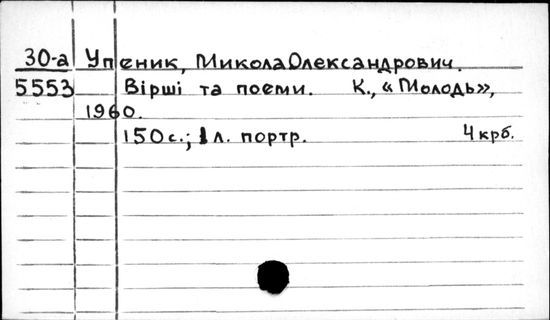 30-а Упеник, Микола Олександрович.
5553 Вірші та поеми. К., «Молодь»,
1960.
150 с.; 1 л. портр. 4 крб.